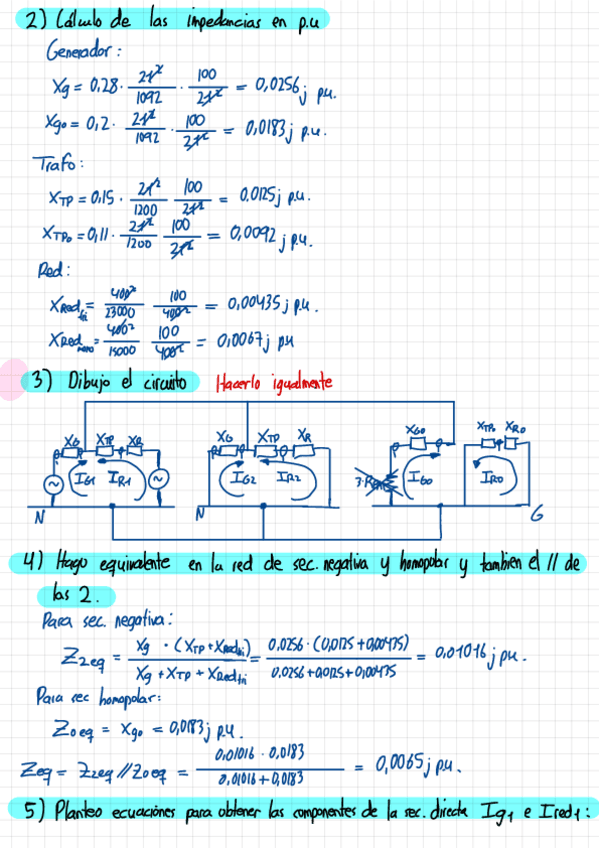 2) Cálculo de las impedancias en p.u
Generador:
Xg = 0,28 · 21²/1092 · 100/21² = 0,0256j p.u.
Xgo = 0,2 · 21²/1092 · 100/21² = 0,0183j p.u.
Trafo:
XTP = 0,15 · 21²/1200 100/21² = 0,0125j p.u.
XTPo = 0,11 · 21²/1200 100/21² = 0,0092j p.u.
Red:
XRed tri = 400²/23000 100/400² = 0,00435j p.u.
XRed homo = 400²/15000 100/400² = 0,0067j pu
3) Dibujo el circuito Hacerlo igualmente
XG XTP XR XG XTP XR XGO XTPo XRO
IG1 IR1 IG2 IR2 3·R IGO IRO
N N G
4) Hago equivalente en la red de sec. negativa y homopolar y tambien el // de
las 2.
Para sec. negativa:
Z2eq = Xg · (XTP + XRedtri) / Xg + XTP + XRedtri = 0,0256 · (0,0125 + 0,00435) / 0,0256 + 0,0125 + 0,00435 = 0,01016j pu.
Para sec homopolar:
Z0eq = Xgo = 0,0183j p.u.
Zeq = Z2eq // Z0eq = 0,01016 · 0,0183 / 0,01016 + 0,0183 = 0,0065j p.u.
5) Planteo ecuaciónes para obtener las componentes de la sec. directa Ig1 e Ired1: